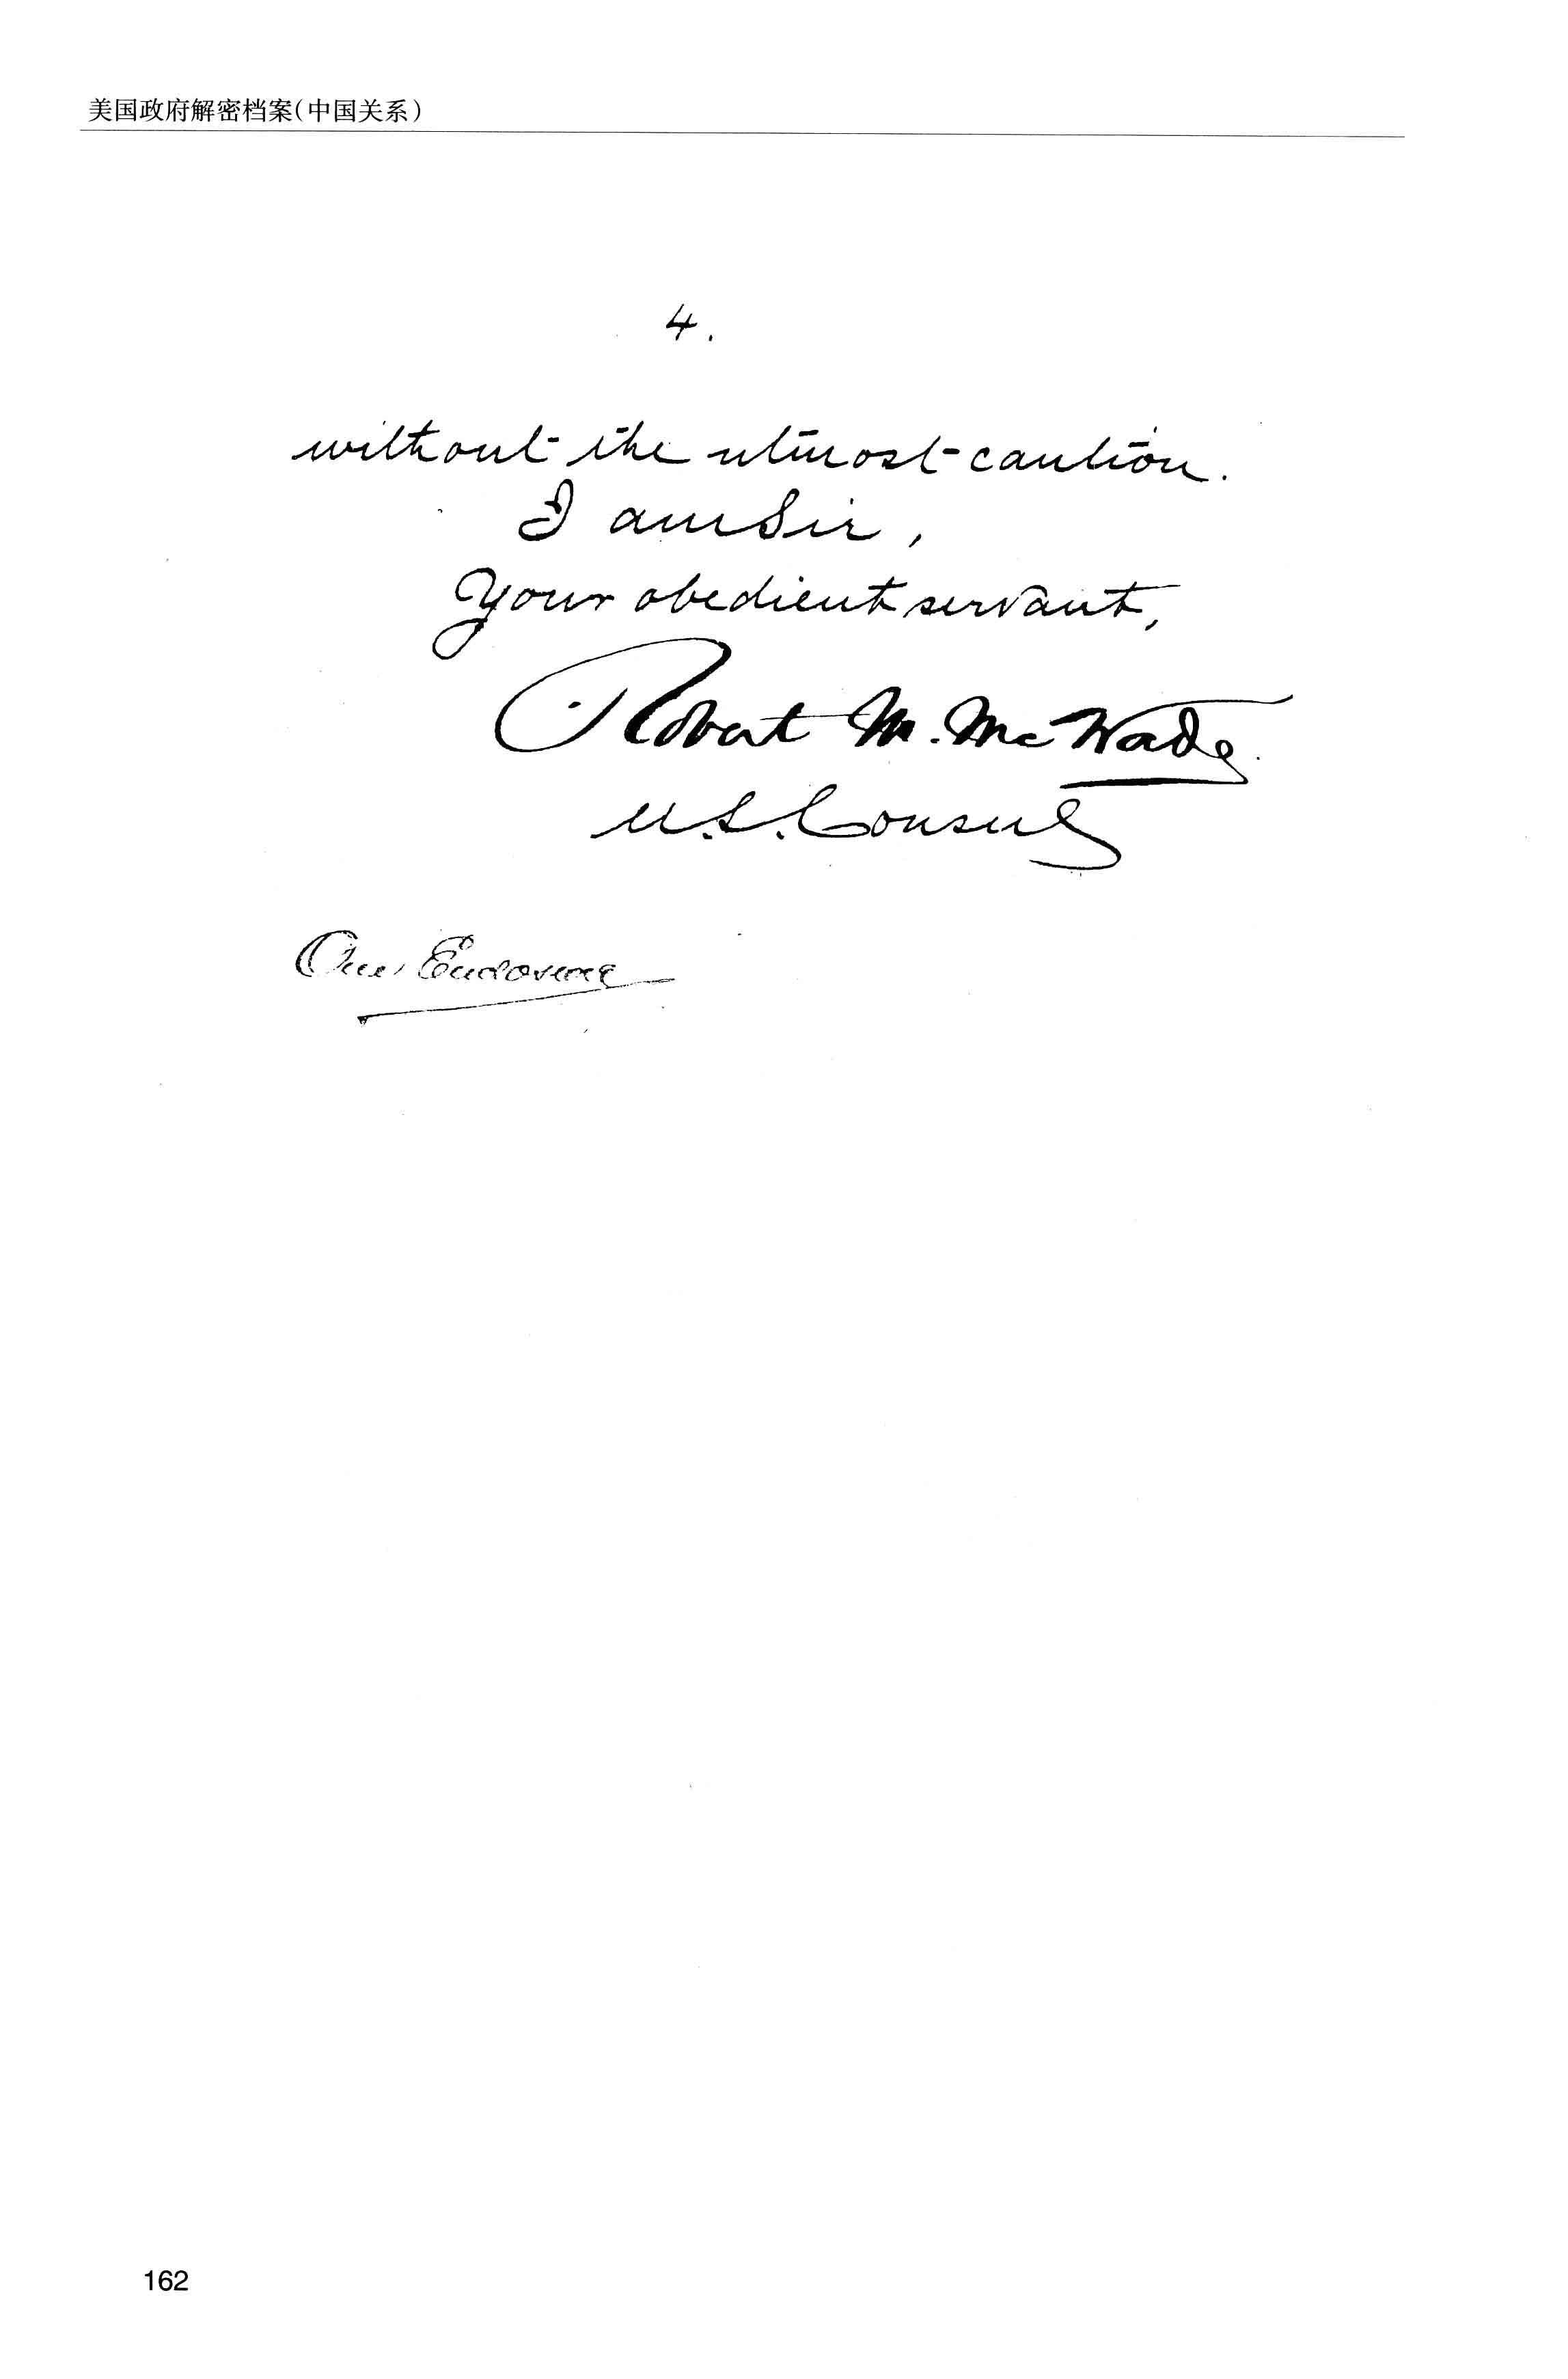 美国政府解密档案(中国关系)
4.
without the utmost caution.
I am Sir,
Your obedient servant,
Robert M. McWade
U.S. Consul
One Enclosure
162